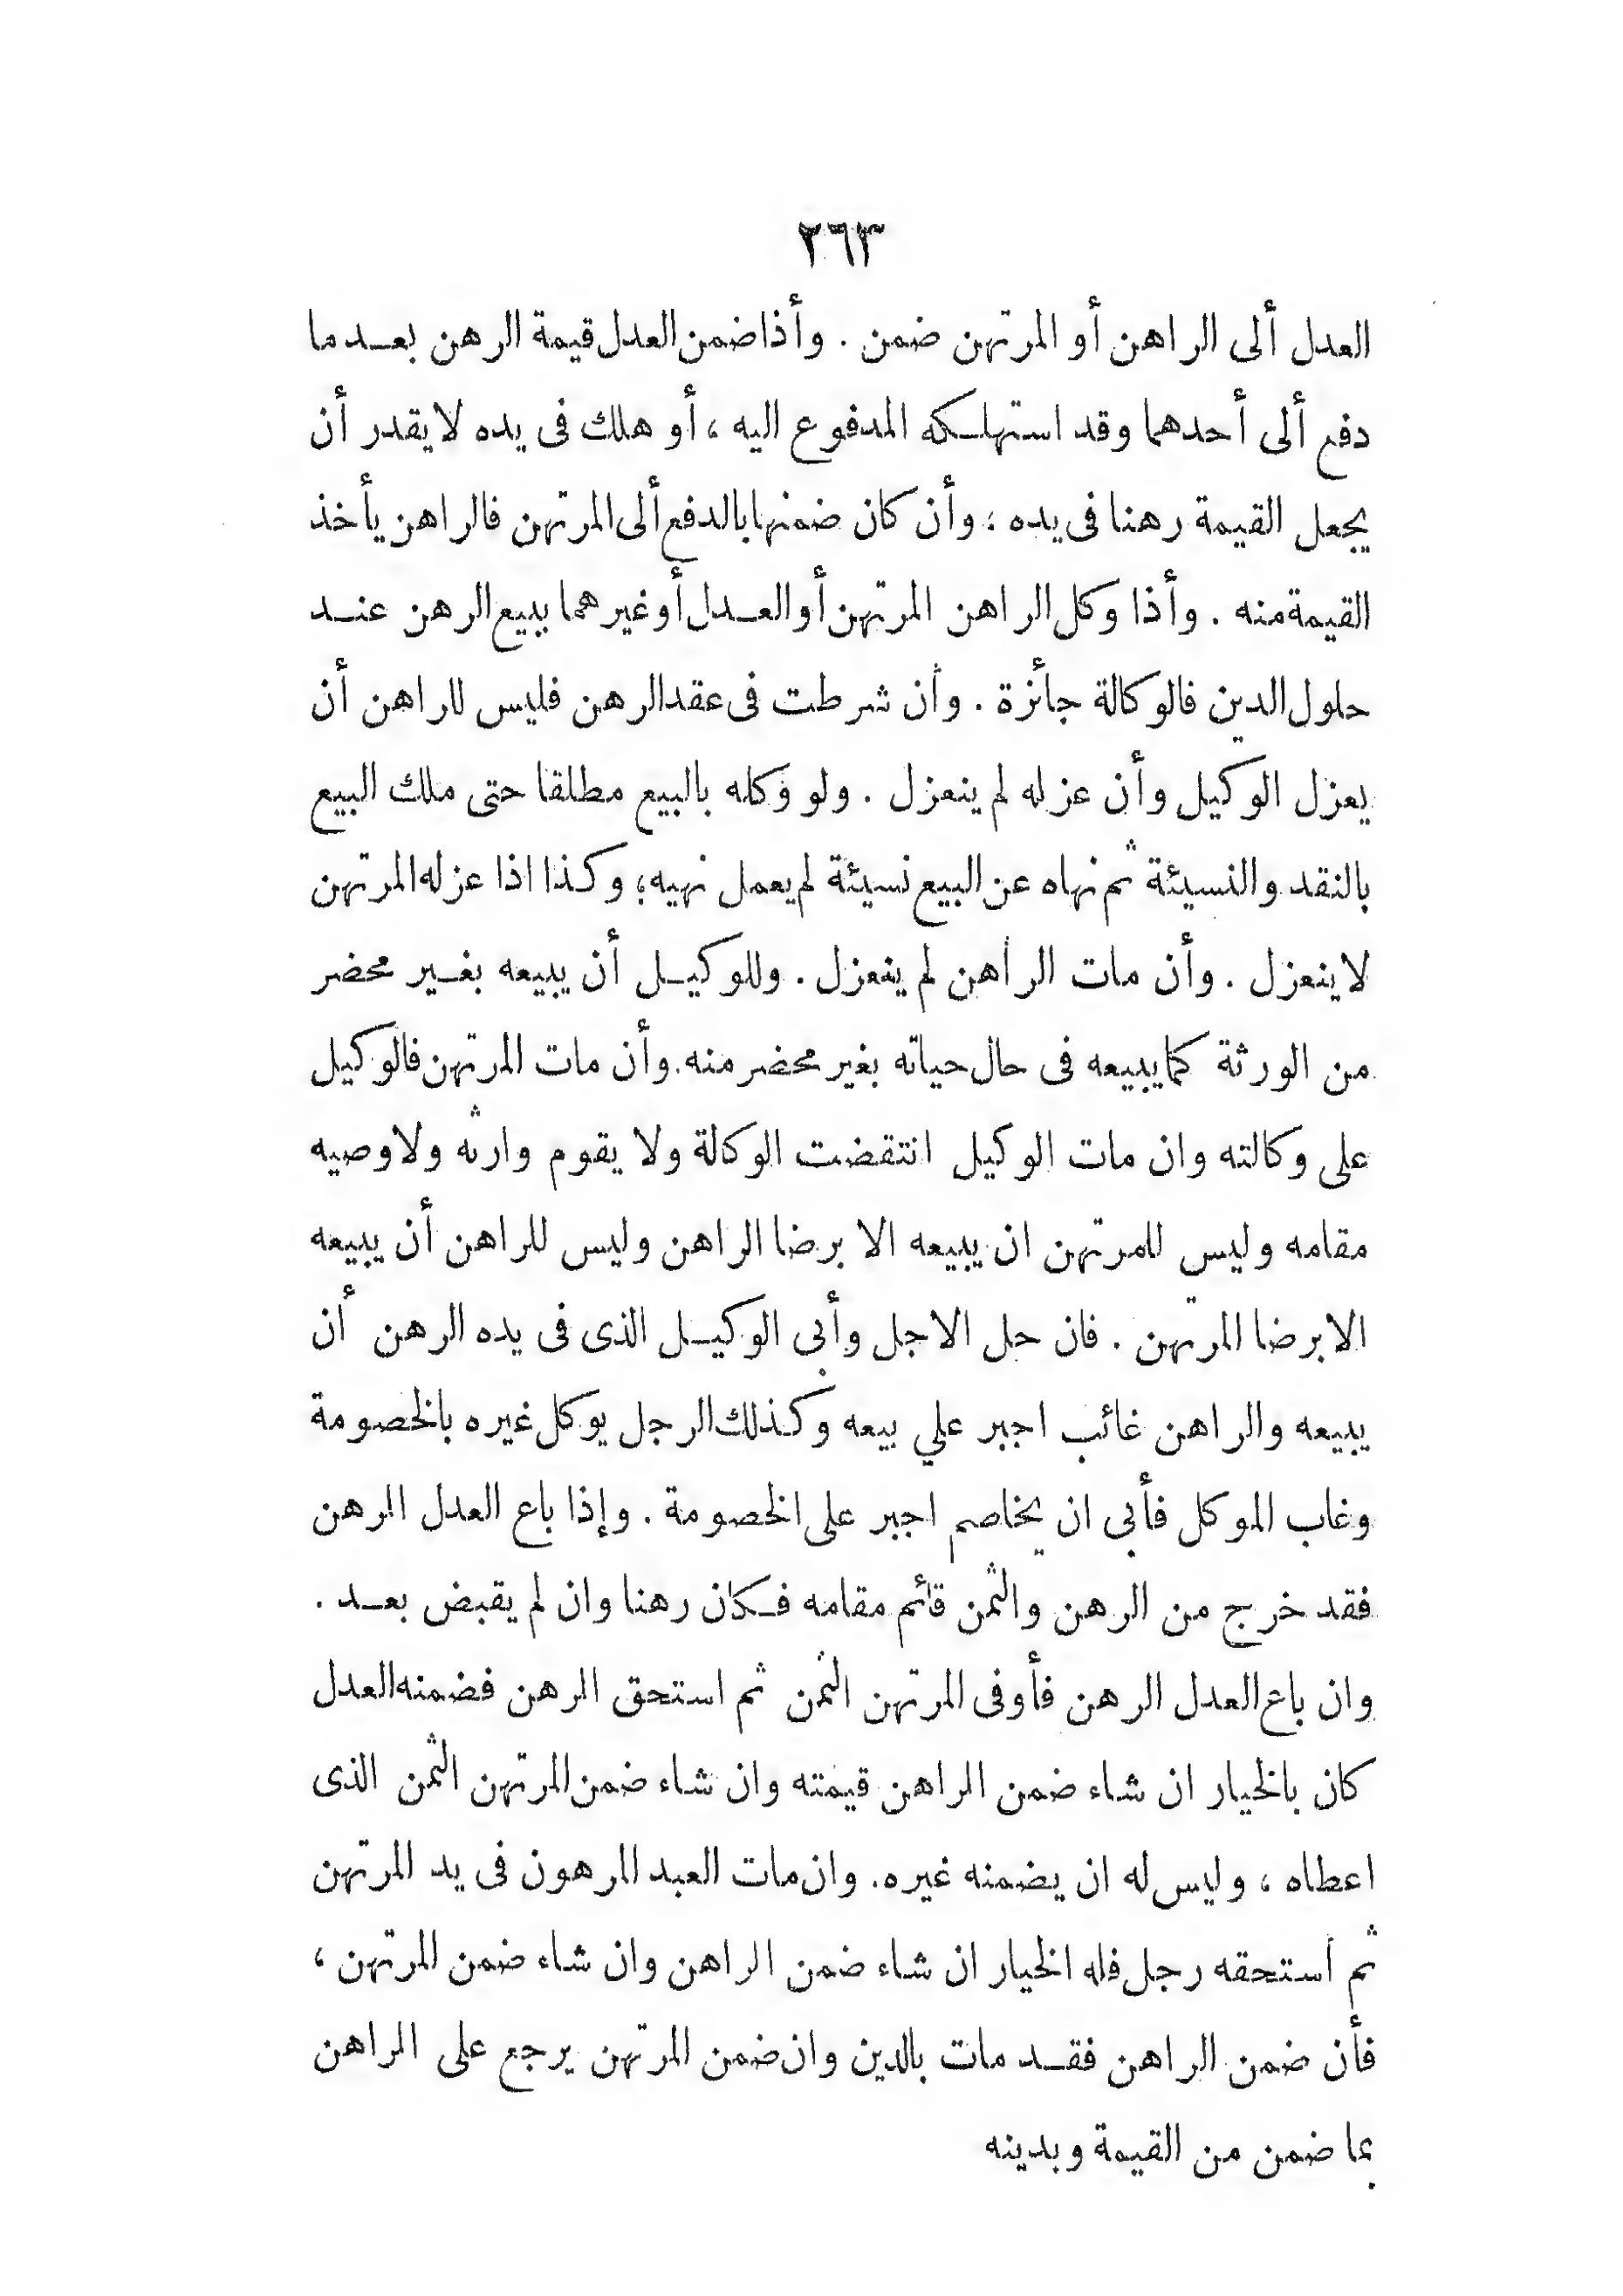 ٢٦٣
العدل ألى الراهن أو المرتهن ضمن . وأذا ضمن العدل قيمة الرهن بعد ما
دفع ألى أحدهما وقد استهلكه المدفوع اليه ، أو هلك فى يده لا يقدر أن
يجعل القيمة رهنا فى يده ؛ وأن كان ضمنها بالدفع ألى المرتهن فالراهن يأخذ
القيمة منه . وأذا وكل الراهن المرتهن أو العدل أو غيرهما ببيع الرهن عند
حلول الدين فالوكالة جأئزة . وأن شرطت فى عقد الرهن فليس للراهن أن
يعزل الوكيل وأن عزله لم ينعزل . ولو وكله بالبيع مطلقا حتى ملك البيع
بالنقد والنسيئة ثم نهاه عن البيع نسيئة لم يعمل نهيه ؛ وكذا اذا عزله المرتهن
لا ينعزل . وأن مات الراهن لم ينعزل . وللوكيل أن يبيعه بغير محضر
من الورثة كما يبيعه فى حال حياته بغير محضر منه . وأن مات المرتهن فالوكيل
على وكالته وان مات الوكيل انتقضت الوكالة ولا يقوم وارثه ولا وصيه
مقامه وليس للمرتهن ان يبيعه الا برضا الراهن وليس للراهن أن يبيعه
الا برضا المرتهن . فان حل الاجل وأبى الوكيل الذى فى يده الرهن أن
يبيعه والراهن غائب اجبر علي بيعه وكذلك الرجل يوكل غيره بالخصومة
وغاب الموكل فأبى ان يخاصم اجبر على الخصومة . وإذا باع العدل الرهن
فقد خرج من الرهن والثمن قائم مقامه فكان رهنا وان لم يقبض بعد .
وان باع العدل الرهن فأوفى المرتهن الثمن ثم استحق الرهن فضمنه العدل
كان بالخيار ان شاء ضمن الراهن قيمته وان شاء ضمن المرتهن الثمن الذى
اعطاه ، وليس له ان يضمنه غيره . وان مات العبد المرهون فى يد المرتهن
ثم أستحقه رجل فله الخيار ان شاء ضمن الراهن وان شاء ضمن المرتهن ،
فأن ضمن الراهن فقد مات بالدين وان ضمن المرتهن يرجع على الراهن
بما ضمن من القيمة وبدينه